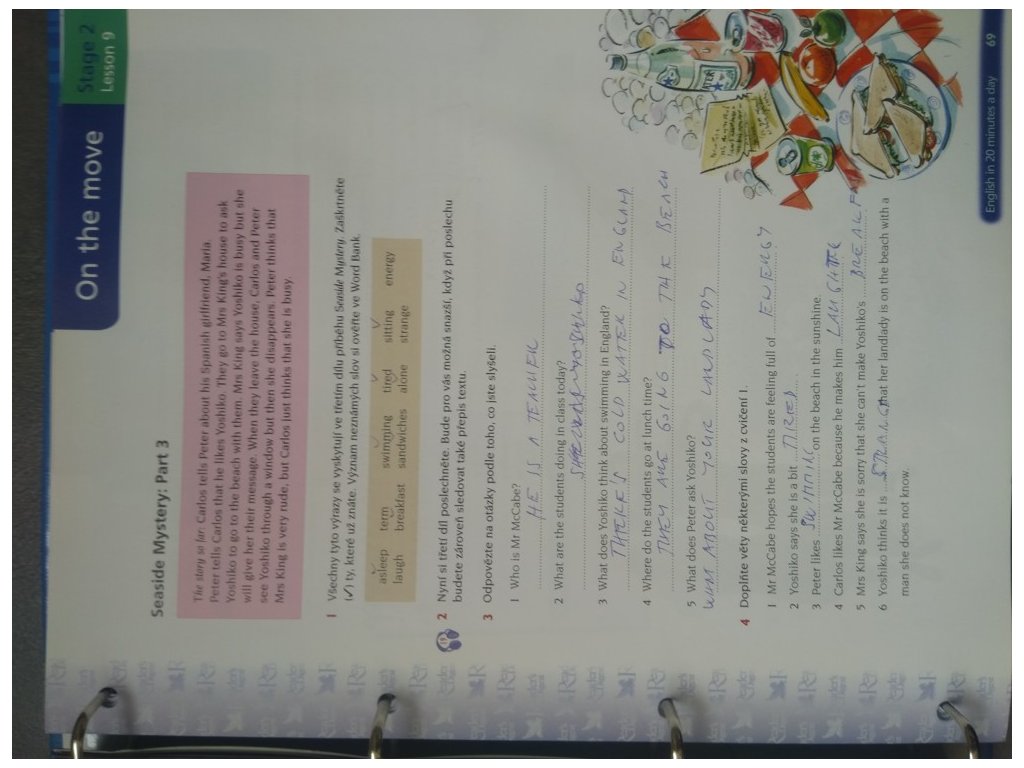 On the move
Stage 2
Lesson 9
Seaside Mystery: Part 3
The story so far: Carlos tells Peter about his Spanish girlfriend, Maria.
Peter tells Carlos that he likes Yoshiko. They go to Mrs King's house to ask
Yoshiko to go to the beach with them. Mrs King says Yoshiko is busy but she
will give her their message. When they leave the house, Carlos and Peter
see Yoshiko through a window but then she disappears. Peter thinks that
Mrs King is very rude, but Carlos just thinks that she is busy.
1 Všechny tyto výrazy se vyskytují ve třetím dílu příběhu Seaside Mystery. Zaškrtněte
(✓) ty, které už znáte. Význam neznámých slov si ověřte ve Word Bank.
asleep term swimming tired sitting energy
laugh breakfast sandwiches alone strange
2 Nyní si třetí díl poslechněte. Bude pro vás možná snazší, když při poslechu
budete zároveň sledovat také přepis textu.
3 Odpovězte na otázky podle toho, co jste slyšeli.
1 Who is Mr McCabe?
HE IS A TEACHER
2 What are the students doing in class today?
3 What does Yoshiko think about swimming in England?
THERE'S COLD WATER IN ENGLAND
4 Where do the students go at lunch time?
THEY ARE GOING TO THE BEACH
5 What does Peter ask Yoshiko?
WHAT ABOUT YOUR LANDLADY
4 Doplňte věty některými slovy z cvičení 1.
1 Mr McCabe hopes the students are feeling full of ENERGY
2 Yoshiko says she is a bit TIRED
3 Peter likes SWIMMING on the beach in the sunshine.
4 Carlos likes Mr McCabe because she makes him LAUGH
5 Mrs King says she is sorry that she can't make Yoshiko's BREAKFA
6 Yoshiko thinks it is STRANGE that her landlady is on the beach with a
man she does not know.
English in 20 minutes a day 69